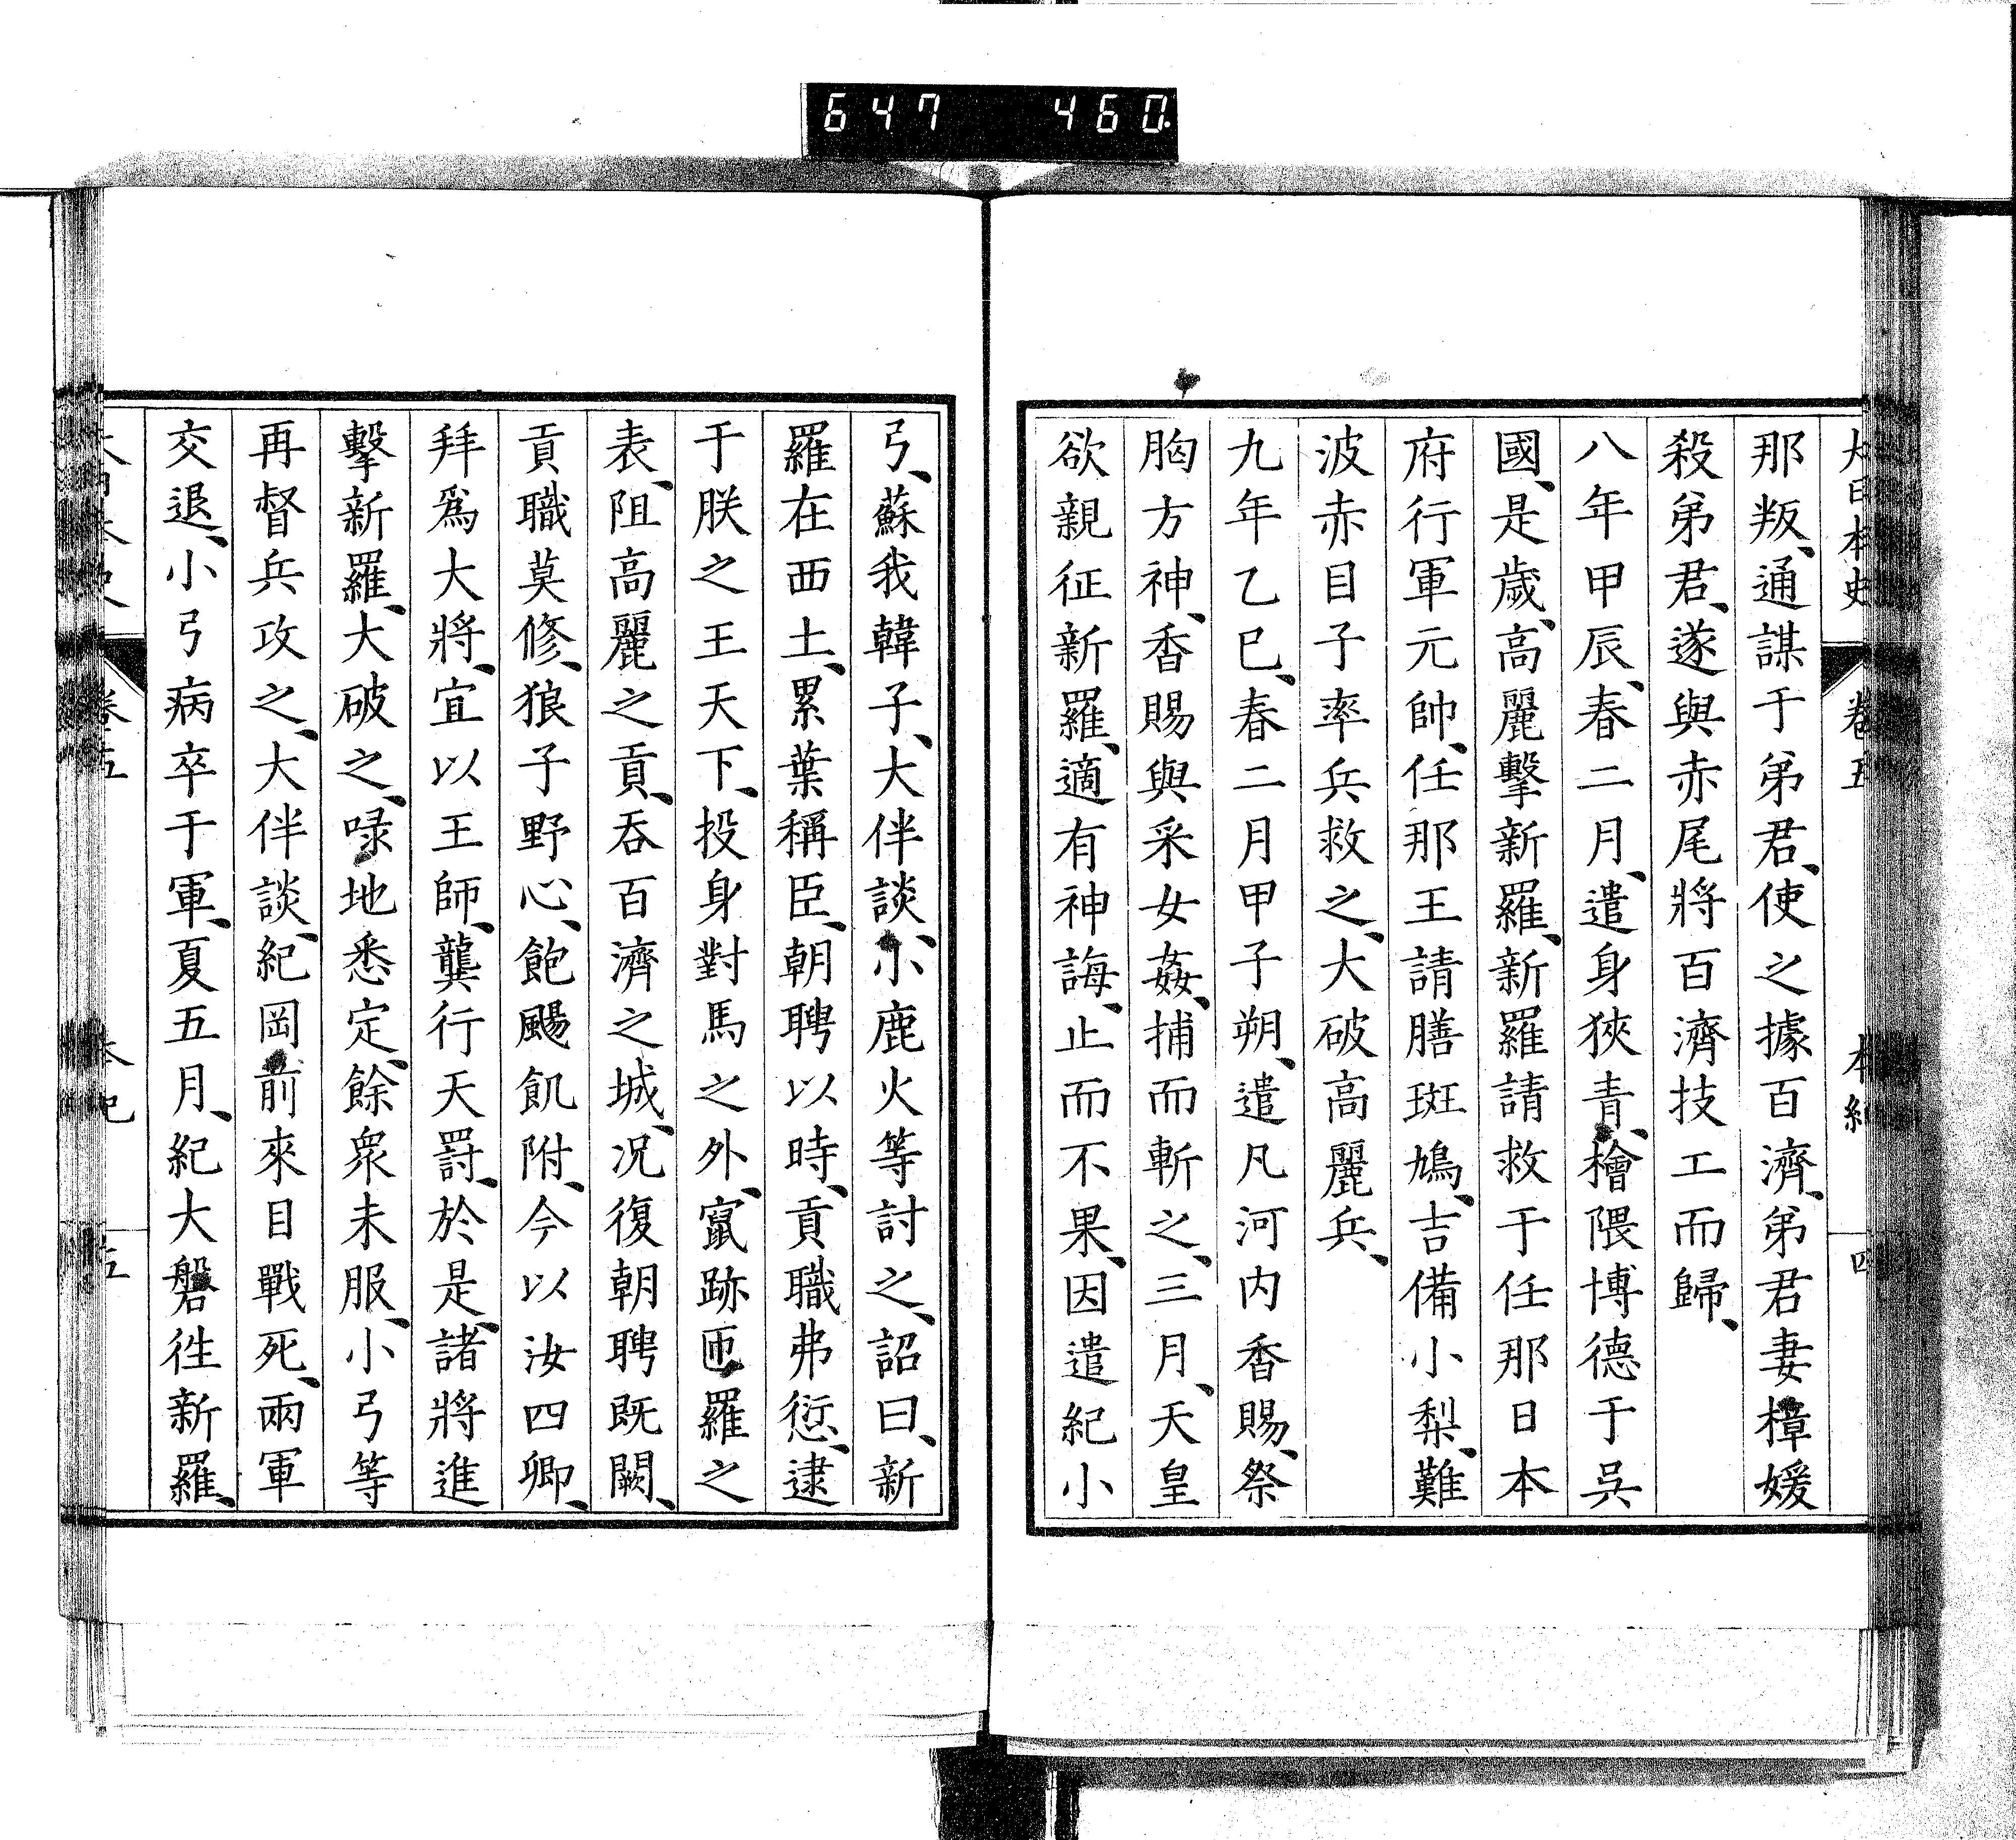 647 460.
大日本史 卷五 本紀 四
那叛、通謀于弟君、使之據百濟、弟君妻樟媛
殺弟君、遂與赤尾將百濟技工而歸、
八年甲辰、春二月、遣身狹青、檜隈博德于呉
國、是歲、高麗擊新羅、新羅請救于任那日本
府行軍元帥、任那王請膳斑鳩、吉備小梨、難
波赤目子率兵救之、大破高麗兵、
九年乙巳、春二月甲子朔、遣凡河内香賜、祭
胸方神、香賜與采女姦、捕而斬之、三月、天皇
欲親征新羅、適有神誨、止而不果、因遣紀小
弓、蘇我韓子、大伴談、小鹿火等討之、詔曰、新
羅在西土、累葉稱臣、朝聘以時、貢職弗愆、逮
于朕之王天下、投身對馬之外、竄跡匝羅之
表、阻高麗之貢、呑百濟之城、况復朝聘既闕、
貢職莫修、狼子野心、飽颺飢附、今以汝四卿、
拜爲大將、宜以王師、龔行天罸、於是、諸將進
擊新羅、大破之、㖨地悉定、餘衆未服、小弓等
再督兵攻之、大伴談、紀岡前來目戰死、兩軍
交退、小弓病卒于軍、夏五月、紀大磐徃新羅、
卷五 本紀 五